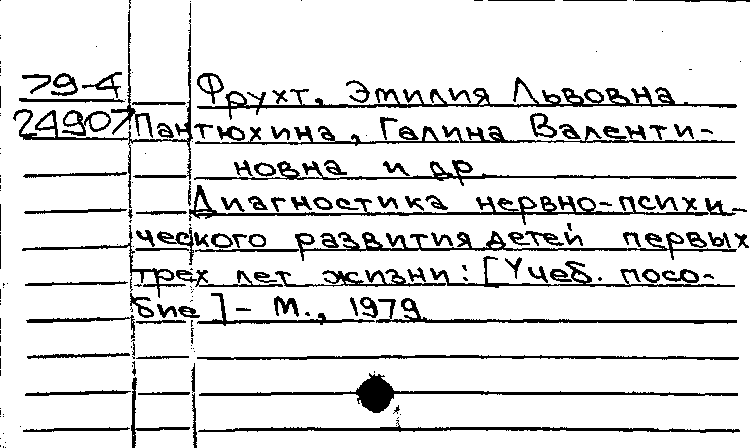 79-4 Фрухт, Эмилия Львовна.
24907 Пантюхина, Галина Валенти-
новна и др.
Диагностика нервно-психи-
ческого развития детей первых
трех лет жизни: [Учеб. посо-
бие] - М., 1979.